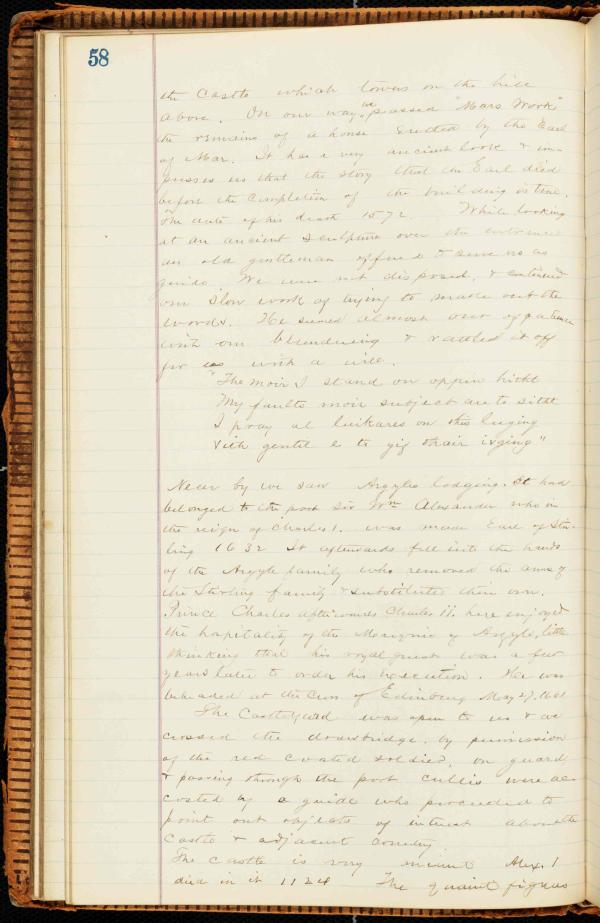 58
the Castle which towers on the hill
above. On our way we passed "Mars Work"
the remains of a house erected by the Earl
of Mar. It has a very ancient look & im-
presses us that the story that the Earl died
before the completion of the building is true.
The date of his death 1572. While looking
at an ancient sculpture over the entrance
an old gentleman offered to serve us as
guide. We were not disposed, & continued
our slow work of trying to make out the
words. He seemed almost out of patience
with our blundering & rattled it off
for us with a will.
"The moir I stand on oppin hitht
My faults moir subject are to sitht
I pray al luikares on this luging
With gentil e to gif thair iuging"
Near by we saw Argyles lodging. It had
belonged to the poet Sir Wm Alexander who in
the reign of Charles 1. was made Earl of Ster-
ling 1632 It afterwards fell into the hands
of the Argyle family who removed the arms of
the Sterling family & substituted their own.
Prince Charles afterwards Charles II. here enjoyed
the hospitality of the Marquis of Argyle, little
thinking that his royal guest was a few
years later to order his execution. He was
beheaded at the Cross of Edinburg May 27. 1661
The Castleyard was open to us & we
crossed the drawbridge, by permission
of the red coated soldier, on guard,
& passing through the port cullis were ac-
costed by a guide who proceeded to
point out objects of interest about the
Castle & adjacent country
The castle is very ancient Alex. 1
died in it 1124 The quaint figures